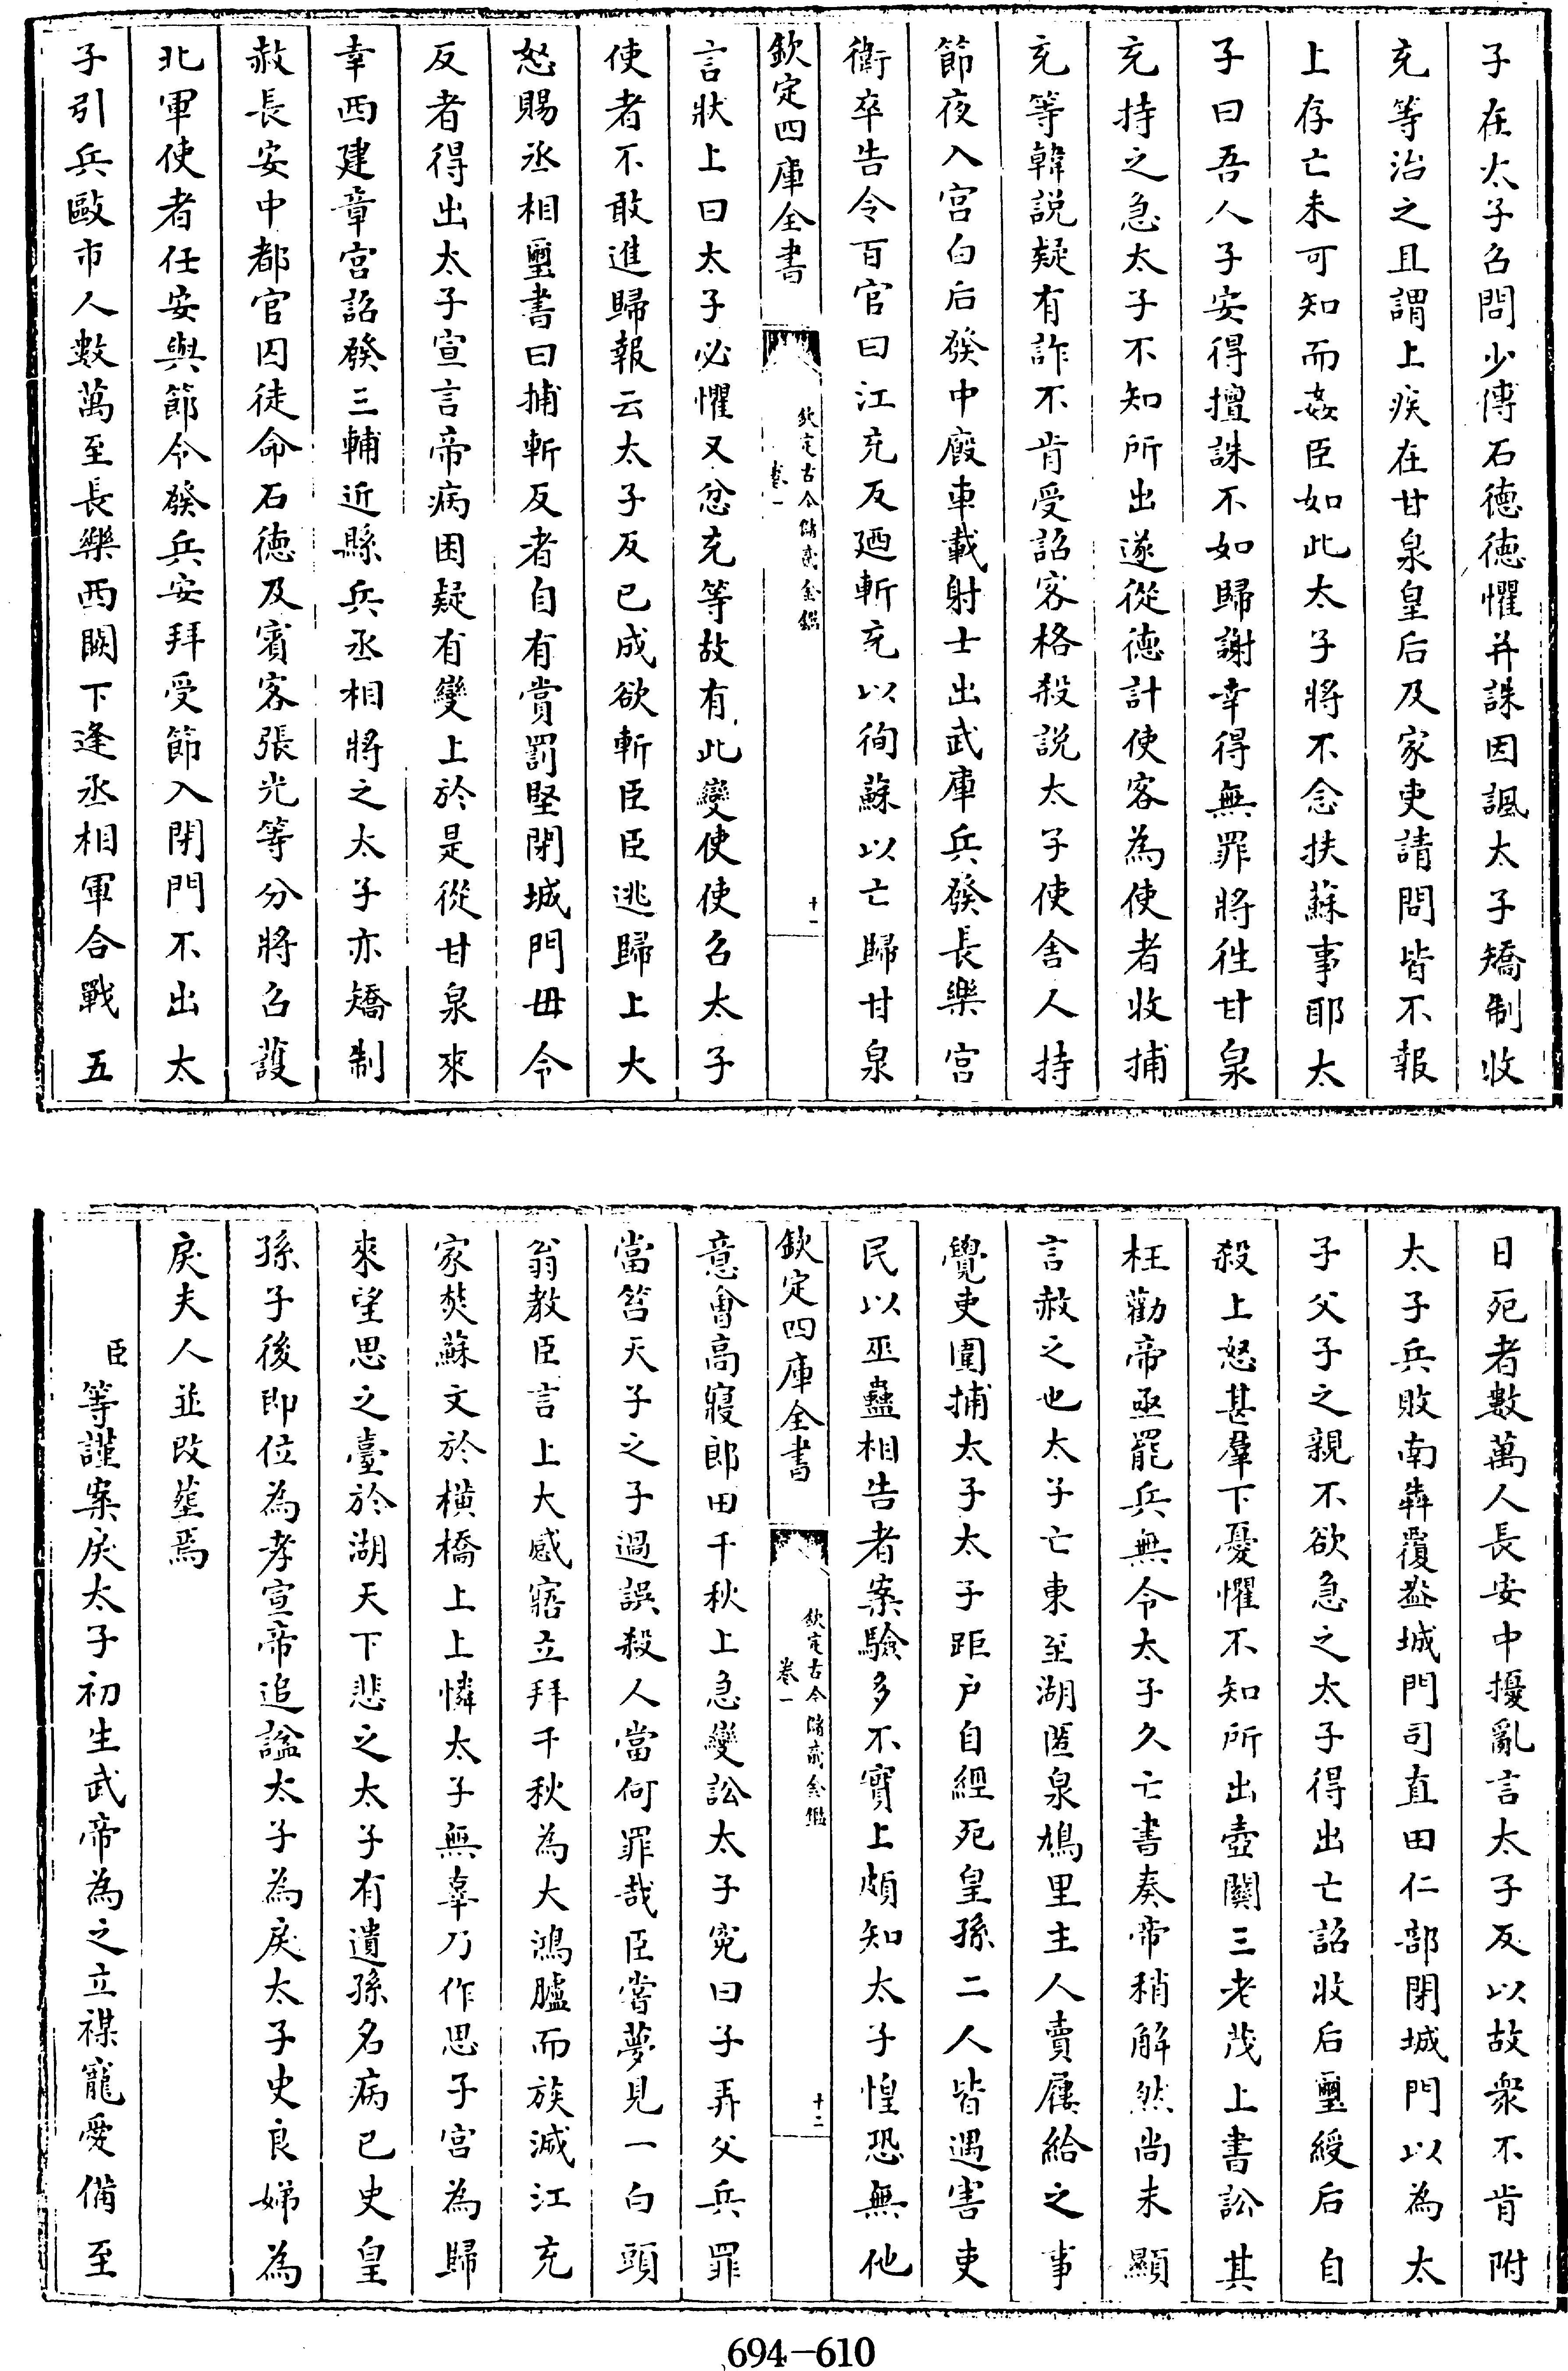 子在太子召問少傅石徳徳懼并誅因諷太子矯制收
充等治之且謂上疾在甘泉皇后及家吏請問皆不報
上存亡未可知而姦臣如此太子將不念扶蘇事耶太
子曰吾人子安得擅誅不如歸謝幸得無罪將徃甘泉
充持之急太子不知所出遂從徳計使客為使者收捕
充等韓説疑有詐不肯受詔客格殺説太子使舍人持
節夜入宫白后發中廐車載射士出武庫兵發長樂宫
衛卒告令百官曰江充反廼斬充以徇蘇以亡歸甘泉
欽定四庫全書
欽定古今儲貳金鑑
卷一
十一
言狀上曰太子必懼又忿充等故有此變使使召太子
使者不敢進歸報云太子反已成欲斬臣臣逃歸上大
怒賜丞相璽書曰捕斬反者自有賞罰堅閉城門毋令
反者得出太子宣言帝病困疑有變上於是從甘泉來
幸西建章宫詔發三輔近縣兵丞相將之太子亦矯制
赦長安中都官囚徒命石徳及賓客張光等分將召護
北軍使者任安與節令發兵安拜受節入閉門不出太
子引兵敺市人數萬至長樂西闕下逢丞相軍合戰五
日死者數萬人長安中擾亂言太子反以故衆不肯附
太子兵敗南犇覆盎城門司直田仁部閉城門以為太
子父子之親不欲急之太子得出亡詔收后璽綬后自
殺上怒甚羣下憂懼不知所出壺關三老茂上書訟其
枉勸帝亟罷兵無令太子久亡書奏帝稍解然尚未顯
言赦之也太子亡東至湖匿泉鳩里主人賣屨給之事
覺吏圍捕太子太子距户自經死皇孫二人皆遇害吏
民以巫蠱相告者案驗多不實上頗知太子惶恐無他
欽定四庫全書
欽定古今儲貳金鑑
卷一
十二
意㑹高寢郎田千秋上急變訟太子寃曰子弄父兵罪
當笞天子之子過誤殺人當何罪哉臣嘗夢見一白頭
翁教臣言上大感寤立拜千秋為大鴻臚而族滅江充
家焚蘇文於橫橋上上憐太子無辜乃作思子宫為歸
來望思之臺於湖天下悲之太子有遺孫名病已史皇
孫子後即位為孝宣帝追諡太子為戾太子史良娣為
戾夫人並改塟焉
臣等謹案戾太子初生武帝為之立禖寵愛備至
694-610